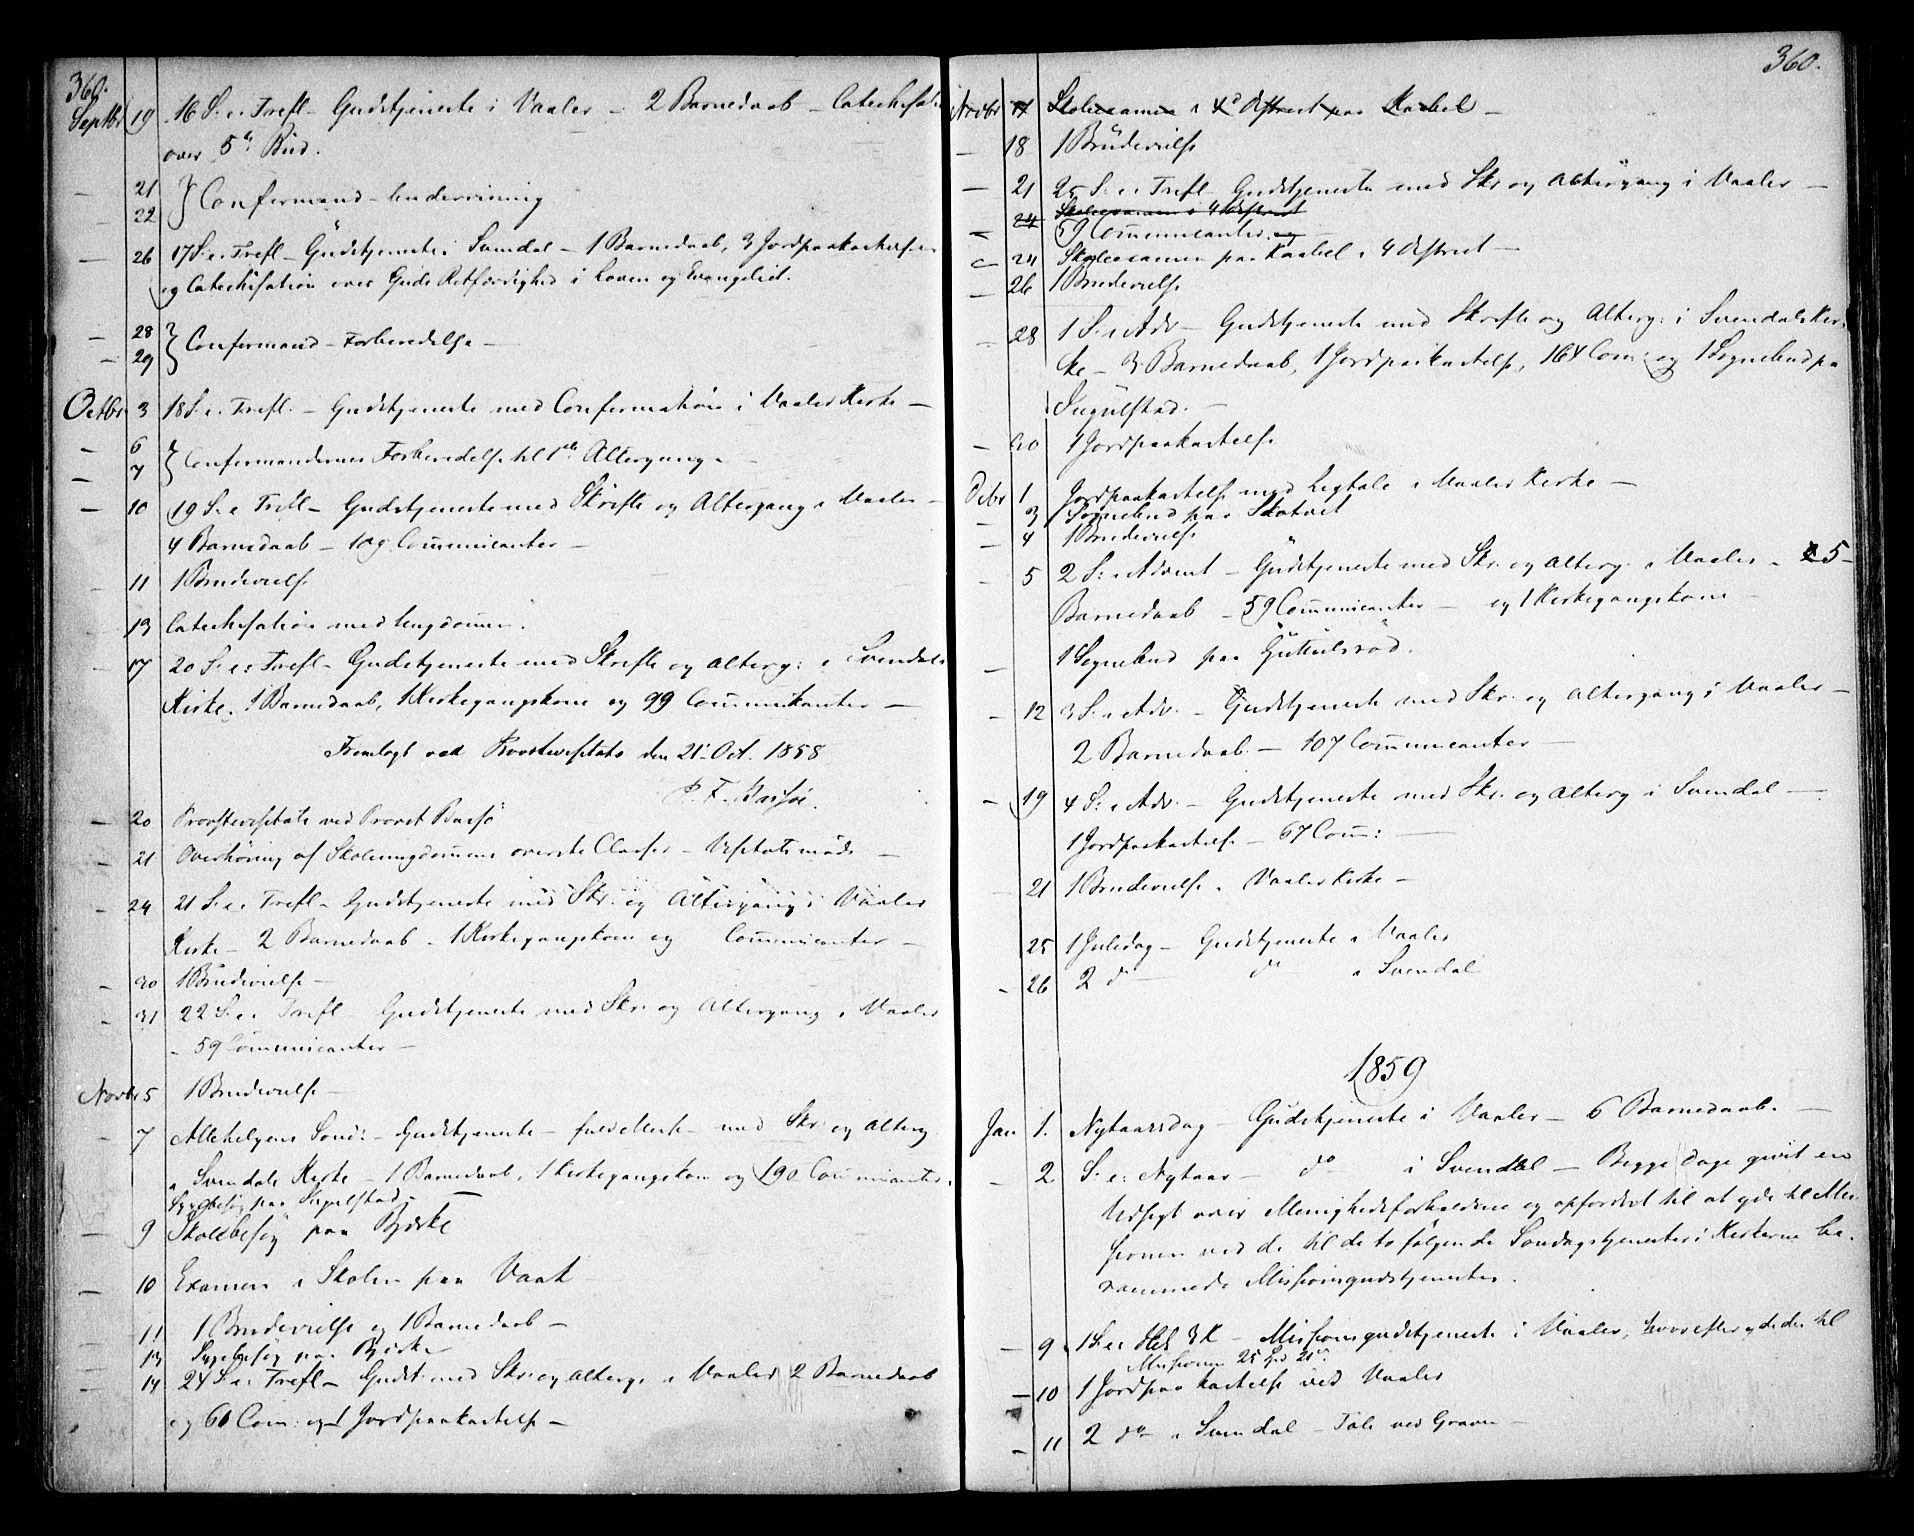 360.
Septbr 19 16 S. e. Trefl. Gudstjeneste i Vaaler – 2 Barnedaab – Catechisation
over 5te Bud.
— 21 } Confirmand-Underviisning
22
— 26 17 S. e. Trefl – Gudstjeneste i Svendal – 1 Barnedaab, 3 Jordpaakastelser
og Catechisation over Guds Retfærdighed i Loven og Evangeliet.
— 28 } Confirmand-Forberedelse –
— 29
Octbr 3 18 S. e. Trefl. – Gudstjeneste med Confirmation i Vaaler Kirke –
— 6 } Confirmandernes Forberedelse til 1ste Altergang –
7
— 10 19 S. e. Trefl – Gudstjeneste med Skrifte og Altergang i Vaaler –
4 Barnedaab – 109 Communicanter –
11 1 Brudevielse
— 13 Catechisation med Ungdommen.
— 17 20 S. e. Trefl – Gudstjeneste med Skrifte og Alterg: i Svendals
Kirke. 1 Barnedaab, 1 Kirkegangskone og 99 Communikanter –
Fremlagt ved Provstevisitats den 21. Oct. 1858
P. F. Bassøe.
— 20 Provstevisitats ved Provst Bassø
— 21 Overhøring af Skoleungdommens øverste Classer – Visitatsmøde –
— 24 21 S. e. Trefl – Gudstjeneste med Skr. og Altergang i Vaaler
Kirke – 2 Barnedaab – 1 Kirkegangskone og Communicanter –
— 30 1 Brudevielse –
— 31 22 S. e. Trefl – Gudstjeneste med Skr. og Altergang i Vaaler
– 59 Communicanter –
Novbr 5 1 Brudevielse –
— 7 Allehelgens Sønd: – Gudstjeneste – med Skr. og Alterg
i Svendals Kirke – 1 Barnedaab, 1 Kirkegangskone og 190 Communicanter.
Sygebesøg paa –
— 9 Skolebesøg paa Bjerke
— 10 Examen i Skolen paa Vaak –
— 11 1 Brudevielse og 1 Barnedaab –
— 13 Sygebesøg paa Bjerke
— 14 24 S. e. Trefl – Gudst. med Skr. og Alterg. i Vaaler 2 Barnedaab
og 60 Com: og 1 Jordpaakastelse –
360.
Novbr 17 Skoleexamen i 4de Distrect paa Kaabel –
— 18 1 Brudevielse
— 21 25 S. e. Trefl – Gudstjeneste med Skr. og Altergang i Vaaler –
24 Skoleexamen i 4 Distrect
— 59 Communicanter –
— 24 Skoleexamen paa Kaabel i 4 Distrect –
— 26 1 Brudevielse
— 28 1 S. i Adv – Gudstjeneste med Skrifte og Alterg: i Svendals Kir-
ke – 3 Barnedaab, 1 Jordpaakastelse, 164 Com: og 1 Sognebud paa
– 
— 30 1 Jordpaakastelse
Debr 1 Jordpaakastelse med Ligtale i Vaaler Kirke –
— 3 1 Sognebud paa
— 4 1 Brudevielse
— 5 2 S: i Advent – Gudstjeneste med Skr. og Alterg. i Vaaler – 5 –
Barnedaab – 59 Communicanter – og 1 Kirkegangskone –
— 1 Sognebud paa Guttulsrød.
— 12 3 S. i Adv. – Gudstjeneste med Skr. og Altergang i Vaaler –
2 Barnedaab – 107 Communicanter –
— 19 4 S: i Adv. – Gudstjeneste med Skr. og Alterg i Svendal –
1 Jordpaakastelse – 67 Com: –
21 1 Brudevielse i Vaaler Kirke –
25 1 Juledag – Gudstjeneste i Vaaler
— 26 2 do – do – i Svendal
1859
Jan 1. Nytaarsdag – Gudstjeneste i Vaaler – 6 Barnedaab. –
— 2 S. e: Nytaar – do i Svendal – Begge Dage givet en
Udsigt over Menighedsforholdene og opfordret til at yde til Mis-
sionen ved de til de to følgende Søndagstjenester i Kirkerne be-
rammede Missionsgudstjenester.
— 9 1 S. e. Hel. 3 K – Missionsgudstjeneste i Vaaler, hvorefter ydedes til
Missionen 25 Spd 21
— 10 1 Jordpaakastelse ved Vaaler
— 11 2 do i Svendal – Tale ved Graven –